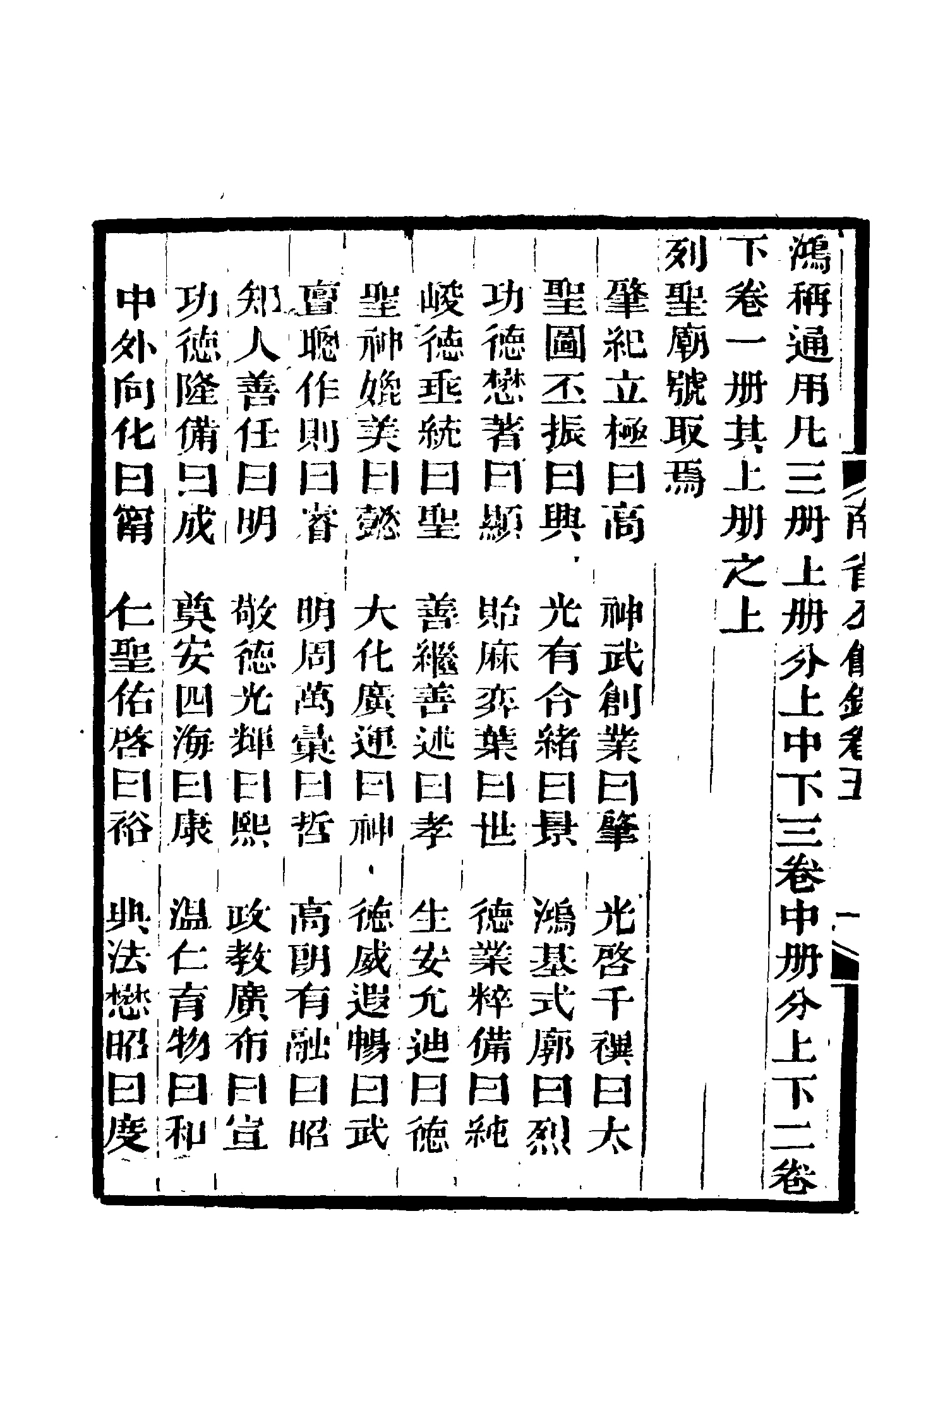 鴻稱通用凡三册上册分上中下三卷中册分上下二卷
下卷一册其上册之上
列聖廟號取焉
肇紀立極曰高　神武創業曰肇　光啓千禩曰太
聖圖丕振曰興　光有令緒曰景　鴻基式廓曰烈
功德懋著曰顯　貽庥弈葉曰世　德業粹備曰純
峻德垂統曰聖　善繼善述曰孝　生安允迪曰德
聖神媲美曰懿　大化廣運曰神　德威遐暢曰武
亶聰作則曰睿　明周萬彙曰哲　高朗有融曰昭
知人善任曰明　敬德光輝曰熙　政教廣布曰宣
功德隆備曰成　奠安四海曰康　温仁育物曰和
中外向化曰甯　仁聖佑啓曰裕　典法懋昭曰度
南省公餘錄卷五
一